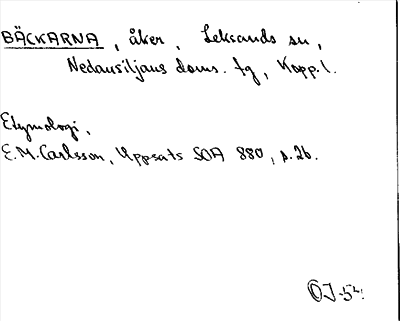 BÄCKARNA, åker, Leksands sn,
Nedansiljans doms. tg, Kopp. l.
Etymologi.
E.M. Carlsson, Uppsats SOA 880, s. 26.
OJ -54.